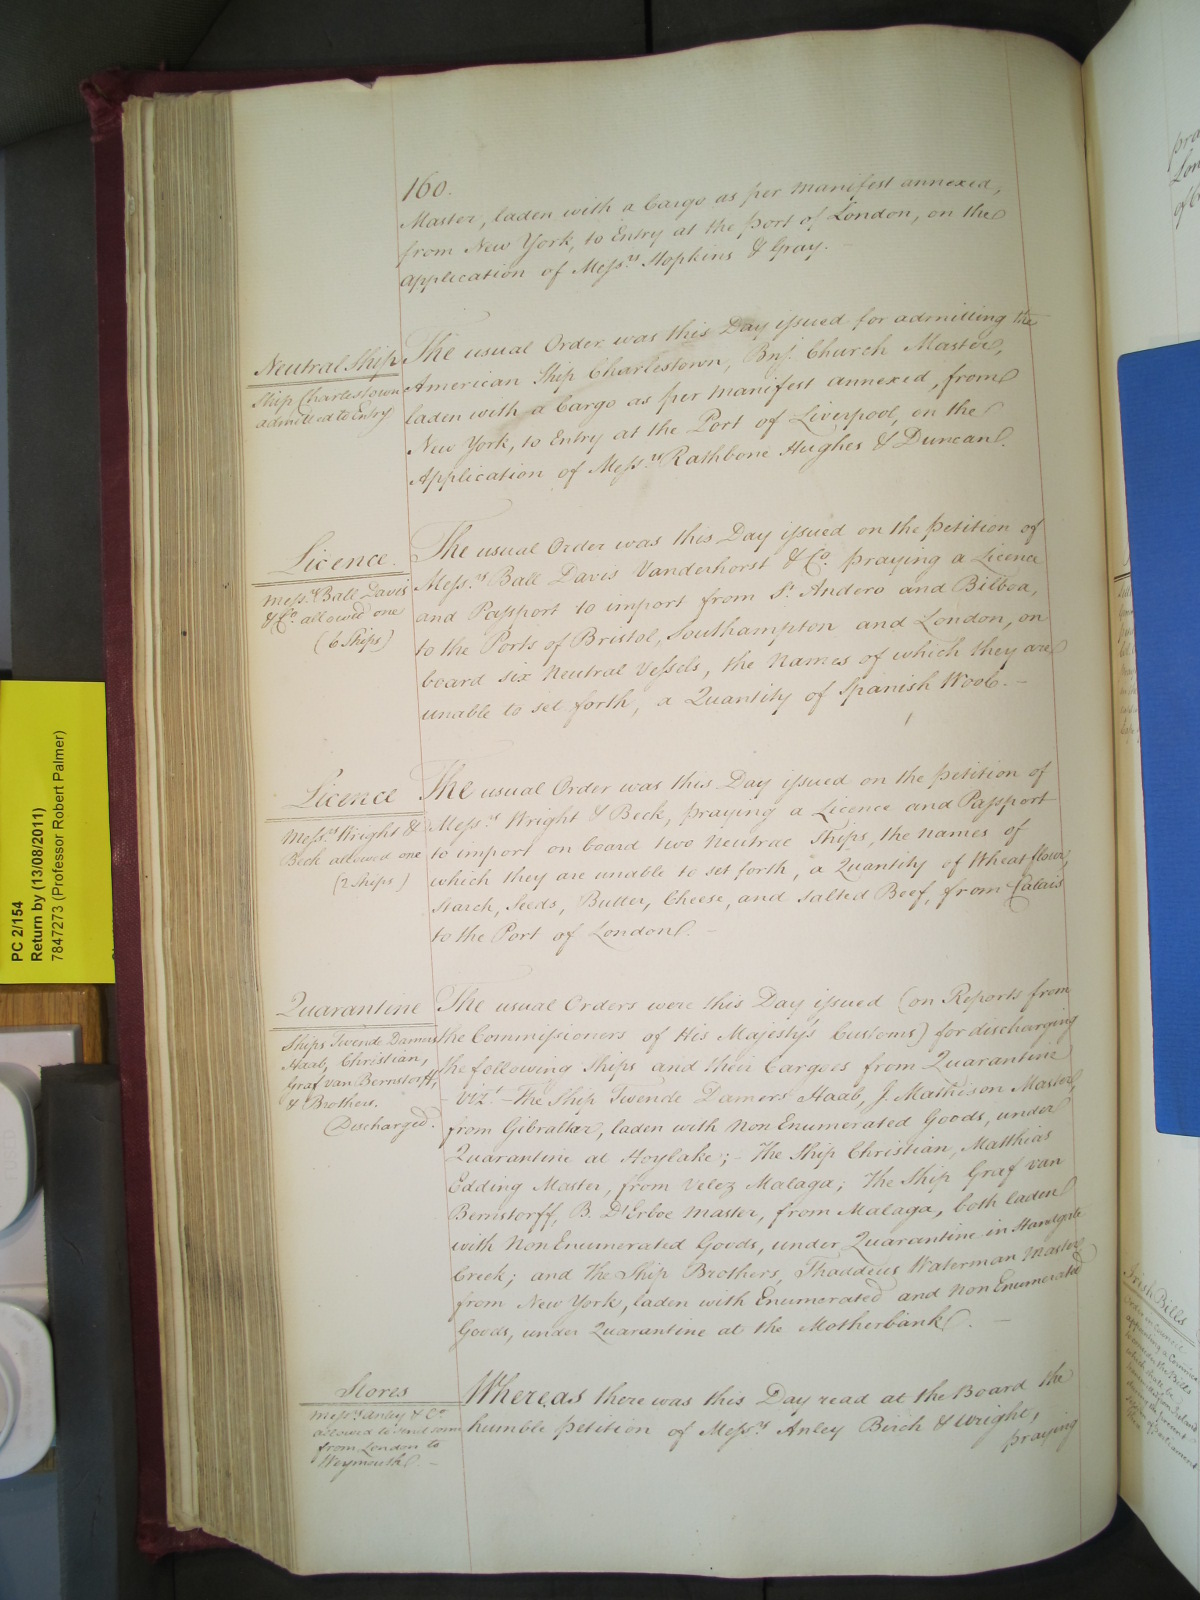 160.
Master, laden with a Cargo as per Manifest annexed,
from New York, to Entry at the port of London, on the
application of Mess.rs Hopkins & Gray.
Neutral Ship
Ship Charlestown
admitted to Entry
The usual Order was this Day issued for admitting the
American Ship Charlestown, Bnj. Church Master,
laden with a Cargo as per manifest annexed, from
New York, to Entry at the Port of Liverpool, on the
Application of Mess.rs Rathbone Hughes & Duncan.
Licence.
Mess.rs Ball Davis
& Co. allowed one
(6 Ships)
The usual Order was this Day issued on the petition of
Mess.rs Ball Davis Vanderhorst & Co. praying a Licence
and Passport to import from St. Andero and Bilboa,
to the Ports of Bristol, Southampton and London, on
board six Neutral Vessels, the Names of which they are
unable to set forth, a Quantity of Spanish Wool. -
Licence
Mess.rs Wright &
Beck allowed one
(2 Ships)
The usual Order was this Day issued on the petition of
Mess.rs Wright & Beck, praying a Licence and Passport
to import on board two Neutral Ships, the names of
which they are unable to set forth, a Quantity of Wheat flour,
Starch, Seeds, Butter, Cheese, and Salted Beef, from Calais
to the Port of London. -
Quarantine
Ships Twende Damers
Haab, Christian,
Graf van Bernstorff,
& Brothers.
Discharged.
The usual Orders were this Day issued (on Reports from
the Commissioners of His Majesty's Customs) for discharging
the following Ships and their Cargoes from Quarantine
- Vizt. - The Ship Twende Damers Haab, J. Mathieson Master,
from Gibraltar, laden with Non Enumerated Goods, under
Quarantine at Hoylake; - The Ship Christian, Matthias
Edding Master, from Velez Malaga; The Ship Graf van
Bernstorff, B. D'Erboe Master, from Malaga, both laden
with Non Enumerated Goods, under Quarantine in Standgate
Creek; and The Ship Brothers, Thaddeus Waterman Master
from New York, laden with Enumerated and Non Enumerated
Goods, under Quarantine at the Motherbank. -
Stores
Mess.rs Anley & Co.
allowed to send some
from London to
Weymouth. -
Whereas there was this Day read at the Board the
humble petition of Mess.rs Anley Birch & Wright,
praying
PC 2/154
Return by (13/08/2011)
7847273 (Professor Robert Palmer)
Irish Bills